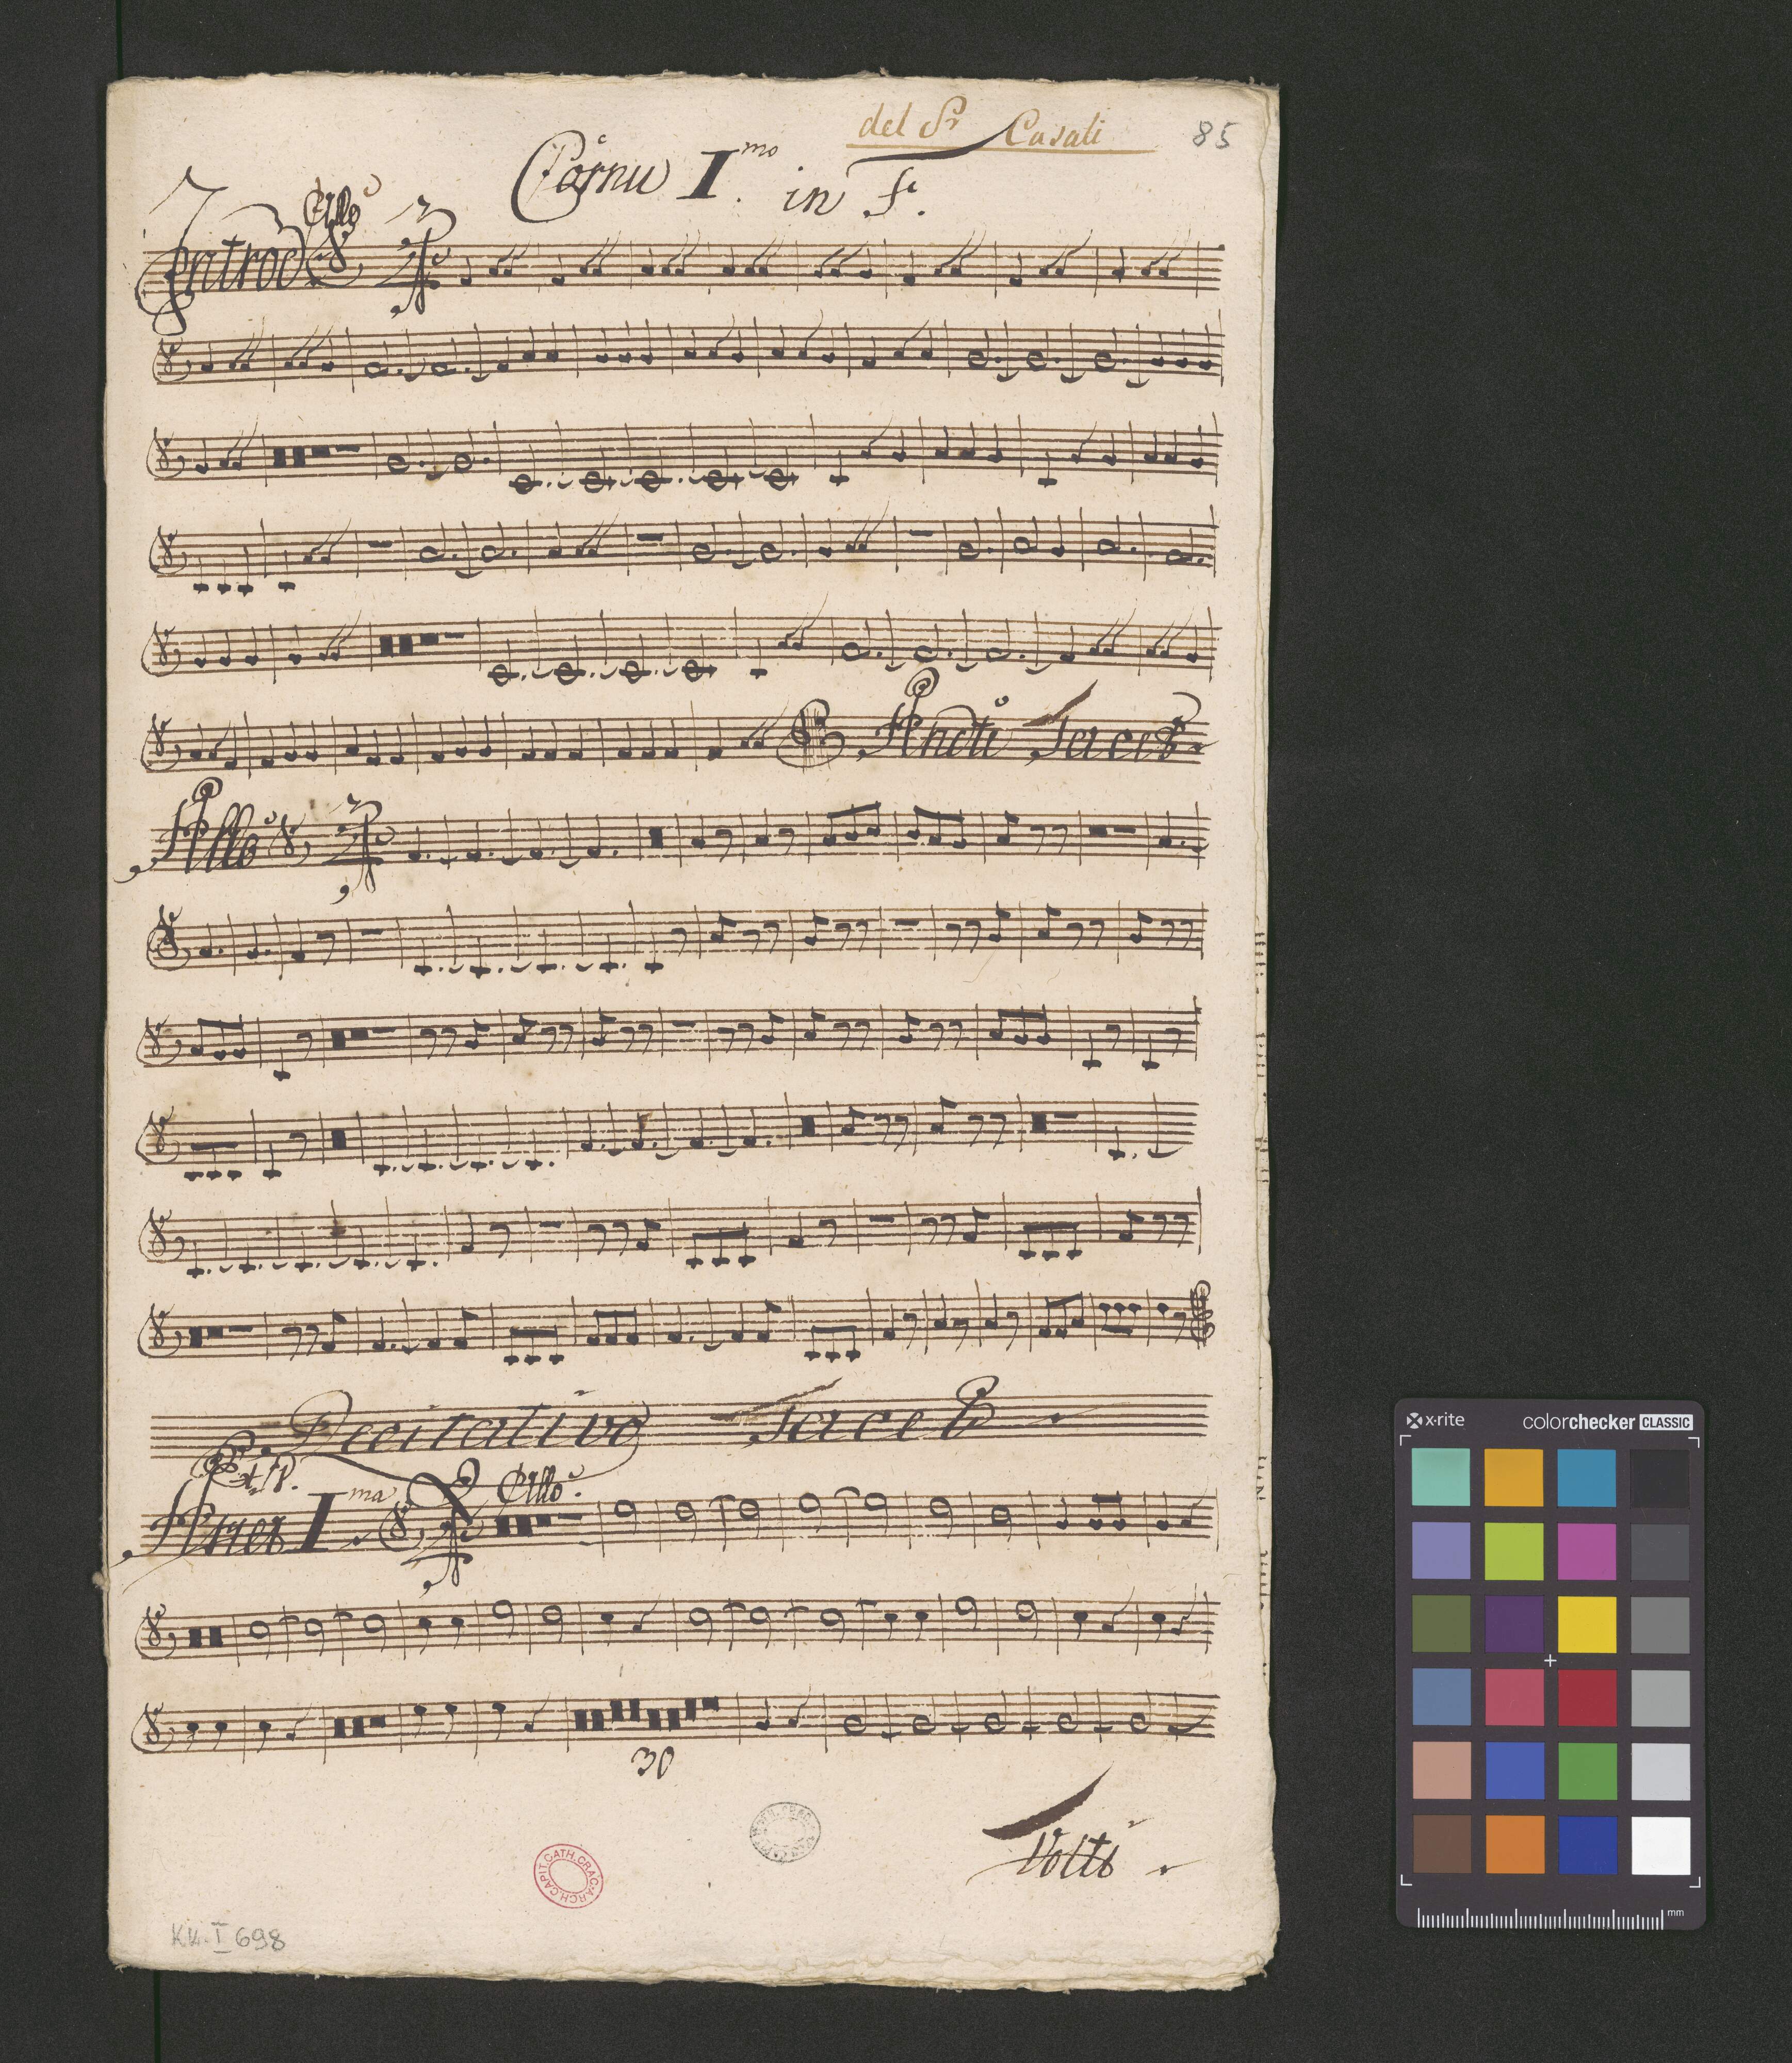 del Sr Casali
85
Cornu I.mo in F.
Introd
Allo
Andte Tacet
Allo
Recitativo Tacet
Aria I ma
Allo.
30
Volti
ARCH. CAPIT. CATH. CRAC.
KK. I 698
x-rite
colorchecker CLASSIC
mm